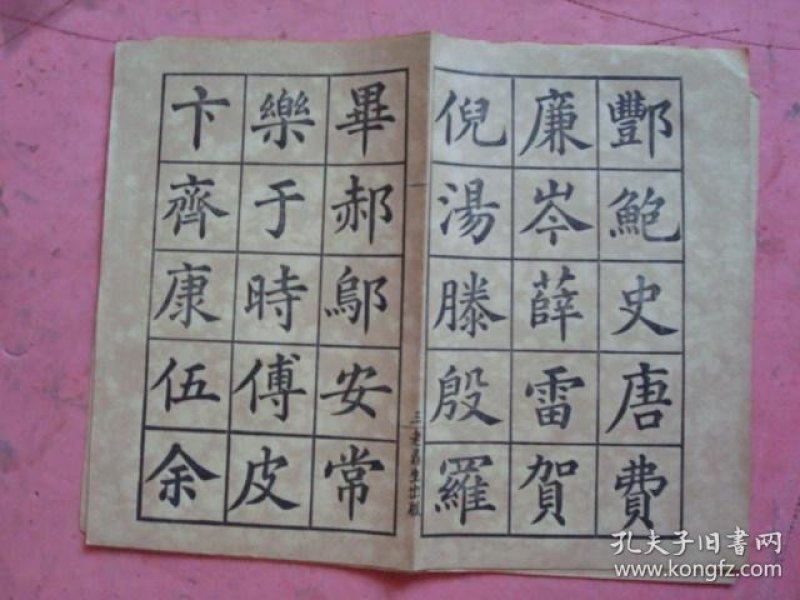 酆鮑史唐費
廉岑薛雷賀
倪湯滕殷羅
畢郝鄔安常
樂于時傅皮
卞齊康伍余
孔夫子旧書网
www.kongfz.com